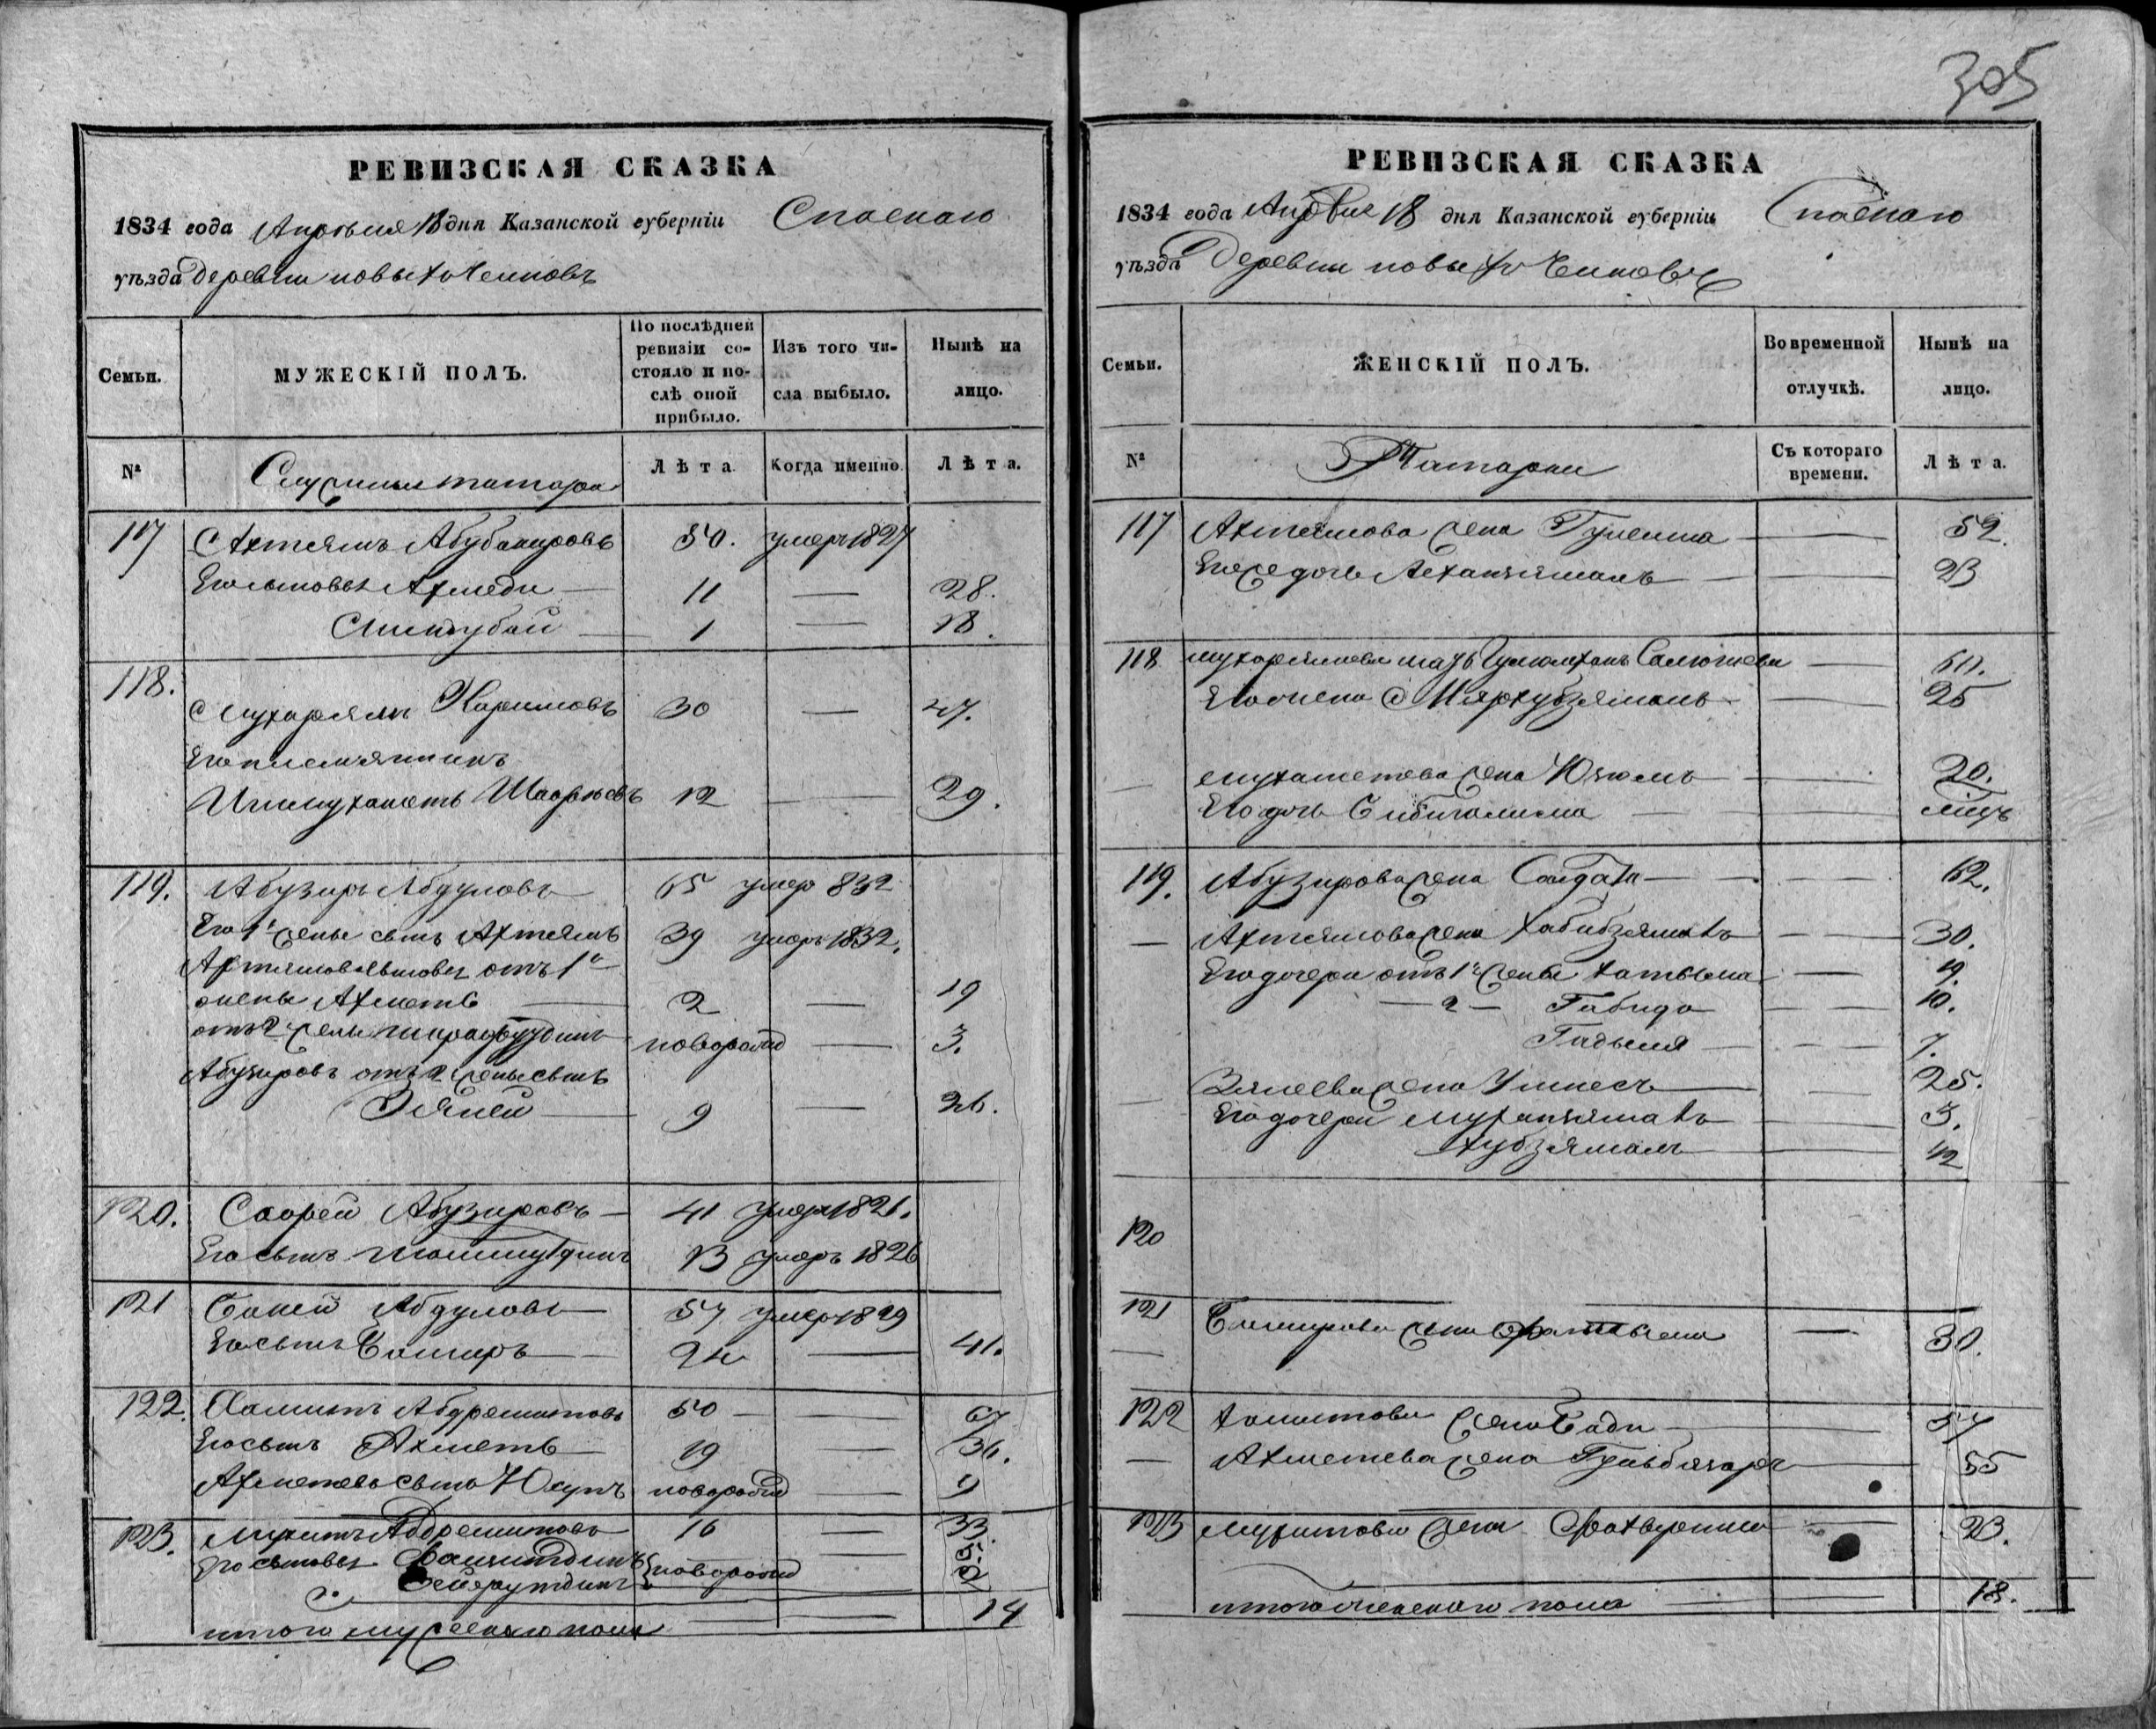 305
РЕВИЗСКАЯ СКАЗКА
1834 года Апреля 18 дня Казанской губерніи Спаскаго
уѣзда Деревни новыхъ Челновъ
Семьи.
МУЖЕСКІЙ ПОЛЪ.
По послѣдней ревизіи состояло и послѣ оной прибыло.
Изъ того числа выбыло.
Нынѣ на лицо.
№
Служилыя татара
Лѣта
Когда именно.
Лѣта.
117 Ахтямъ Абубакировъ 50. умеръ 1827
Его сыновья Ахмеди — 11 — 28.
— 1 — 18.
118. Мухарямъ Каримовъ 30 — 47.
Его племянникъ
12 — 29.
119. Абузяръ Абдуловъ 65 умер 832
Его 1й жены сынъ Ахтямъ 39 умеръ 1832.
Ахтямова сыновья отъ 1й
жены Ахметъ — 2 — 19
отъ 2 жены Шарафутдинъ новорожд — 3.
Абузяровъ отъ 2 жены сынъ
Зяней — 9 — 26.
120. Сафей Абузяровъ — 41 умеръ 1826.
Его сынъ 13 умеръ 1826
121 Бакей Абдуловъ — 57 умеръ 1829
Его сынъ Башаръ — 24 — 41.
122. Хамитъ Абдрешитовъ 50 — 67.
Его сынъ Ахметъ — 19 — 36.
Ахметевъ сынъ Юсупъ новорожд — 9
123. Мухитъ Абдрешитовъ 16 — 33.
Его сыновья новорожд
итого мужескаго пола — 14
РЕВИЗСКАЯ СКАЗКА
1834 года Апреля 18 дня Казанской губерніи Спаскаго
уѣзда Деревни новыхъ Челновъ
Семьи.
ЖЕНСКІЙ ПОЛЪ.
Во временной отлучкѣ.
Нынѣ на лицо.
№
Татарки
Съ котораго времени.
Лѣта.
117 Ахтямова жена — 52.
Его же дочь — 23
118 Мухарямова мать — 60.
Его жена — 25
Мухаметева жена Юзюмъ — 20.
Его дочь Бибигалима — мѣсц
119. Абузярова жена Саида — 62.
— Ахтямова жена Хабибзямалъ — 30.
Его дочери отъ 1й жены Хатыма — 19.
— 2 — Габида — 10.
Гадыля — 7.
Зянеева жена — 25.
Его дочери — 3.
Хубзямалъ — 1/2
120
121 Башарова жена — 30.
122 Хамитова жена Бади — 57
— Ахметева жена Гульбязаръ — 35
123 Мухитова жена — 23.
итого женскаго пола — 18.